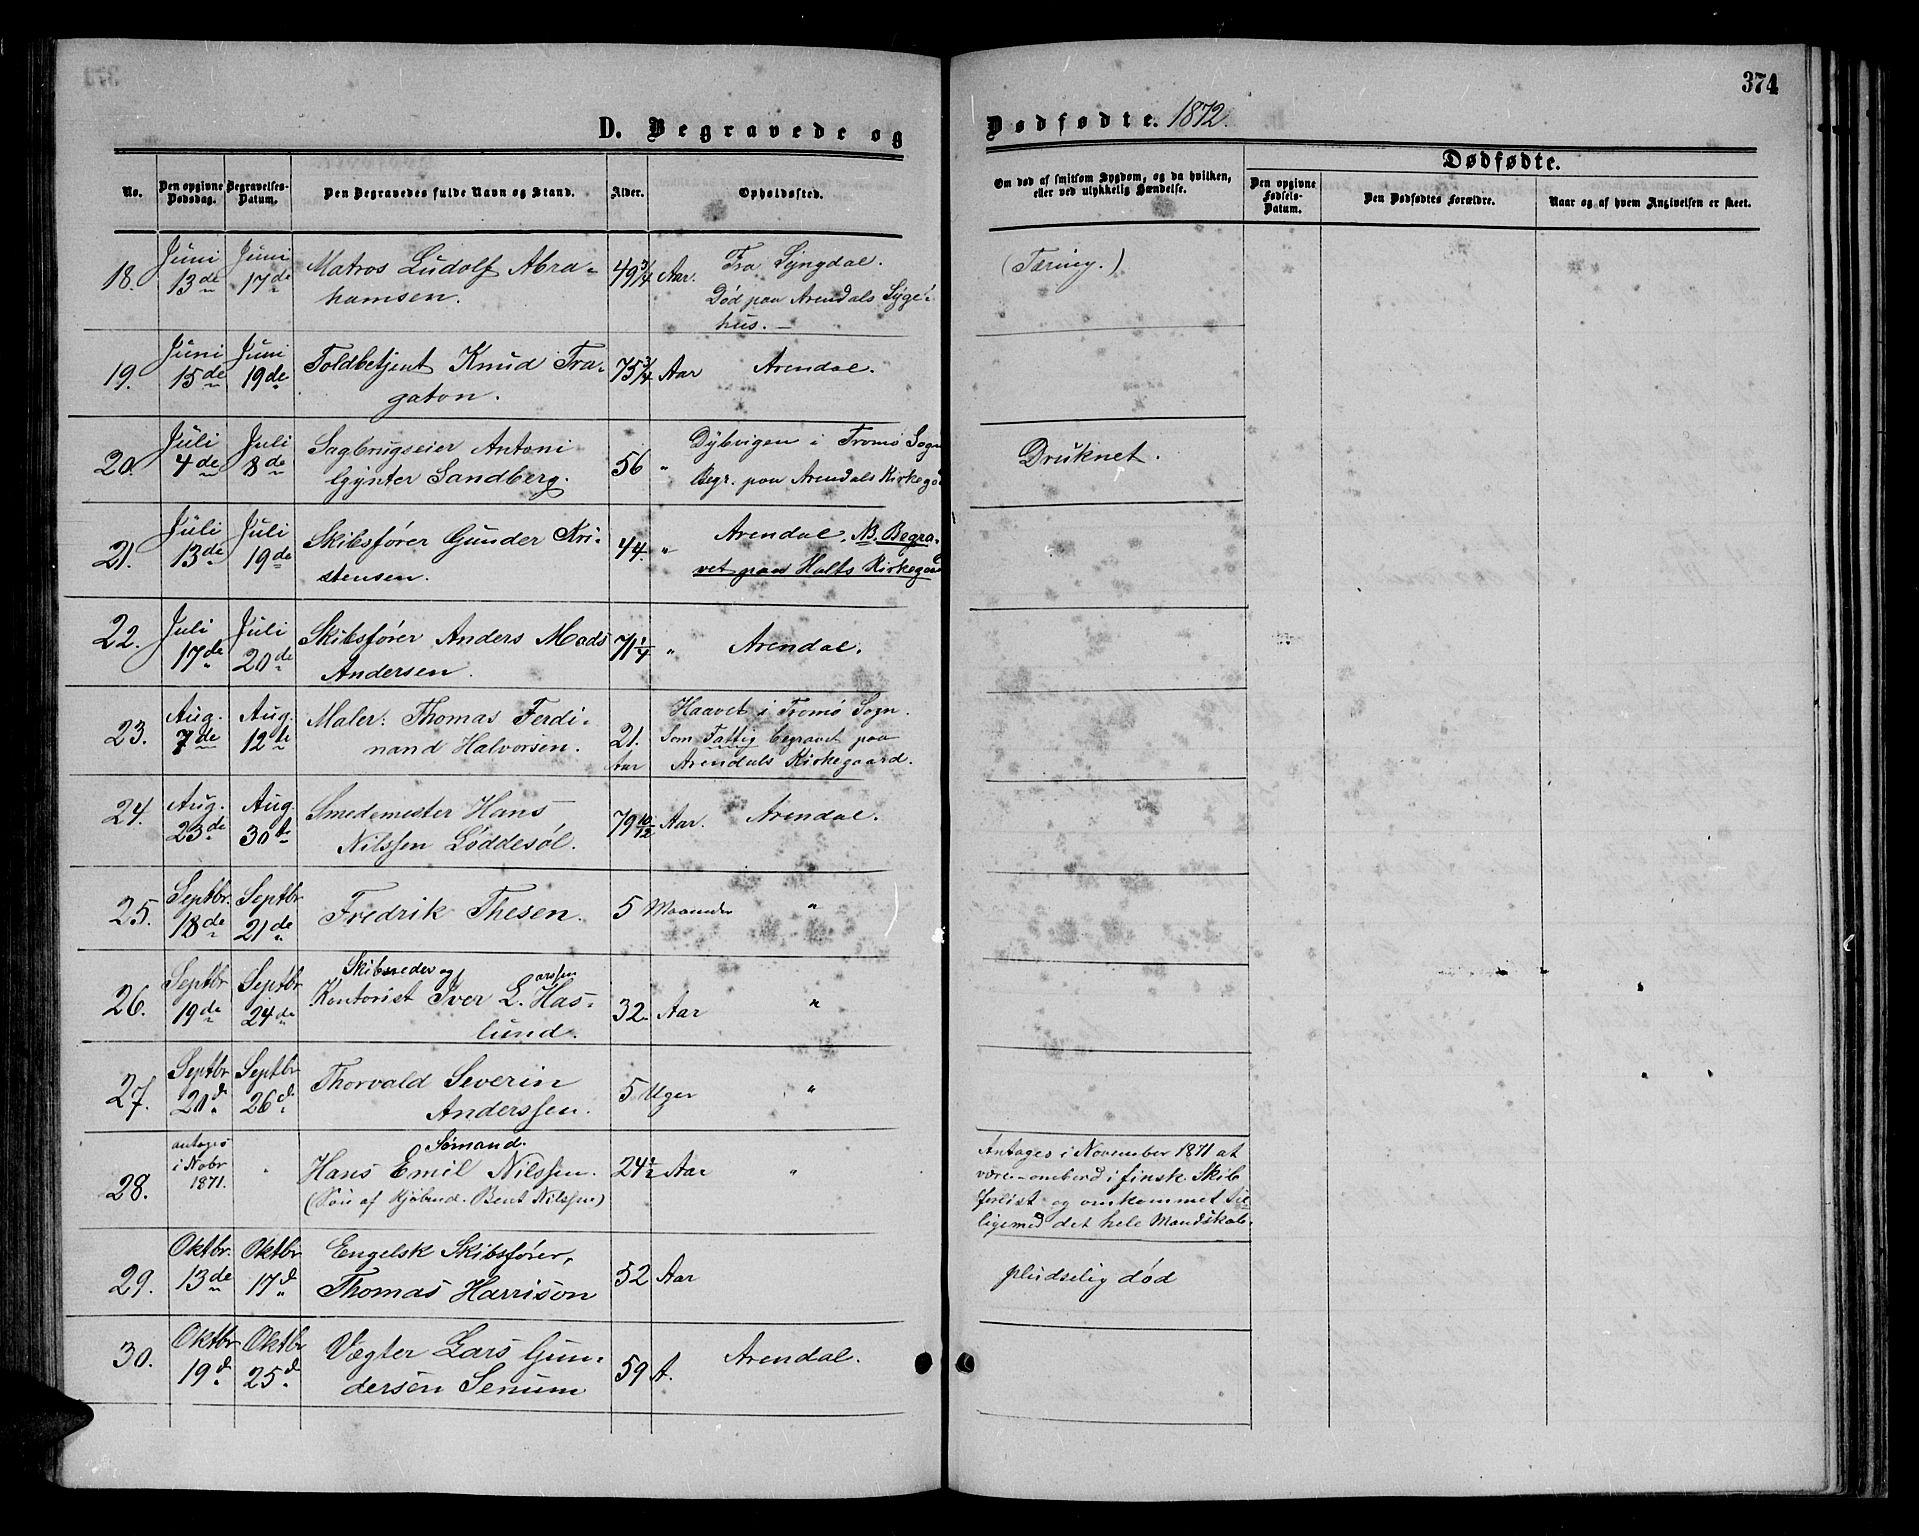 374
D. Begravede og Dødfødte. 1872.
Dødfødte.
No.
Den opgivne Dødsdag.
Begravelses-Datum.
Den Begravedes fulde Navn og Stand.
Alder.
Opholdssted.
Om død af smitsom Sygdom, og da hvilken, eller ved ulykkelig Hændelse.
Den opgivne Fødsels-Datum.
Den Dødfødtes Forældre.
Naar og af hvem Angivelsen er skeet.
18. Juni 13de Juni 17de Matros Ludolf Abra-
hamsen. 49 3/4 Aar. Fra Lyngdal.
Død paa Arendals Syge-
hus. —
(Tæring.)
19. Juni 15de Juni 19de Toldbetjent Knud Tra-
gaton. 75 3/4 Aar Arendal.
20. Juli 4de Juli 8de Sagbrugseier Antoni
Gynter Sandberg. 56 " Dybvigen i Tromø Sogn
Begr. paa Arendals
Druknet.
21. Juli 13de Juli 19de Skibsfører Gunder Kri-
stensen. 44. " Arendal. NB. Begra-
vet paa Holts Kirkegaard
22. Juli 17de Juli 20de Skibsfører Anders Mads
Andersen. 71 1/4 " Arendal.
23. Aug. 7de Aug. 12te Maler: Thomas Ferdi-
nand Halvorsen. 21. Aar Haavet i Tromø Sogn.
Som Fattig begravet paa
Arendals Kirkegaard.
24. Aug. 23de Aug. 30te Smedemester Hans
Nilssen Løddesøl. 79 10/12 Aar. Arendal.
25. Septbr. 18de Septbr 21de Fredrik Thesen. 5 Maaneder "
26. Septbr 19de Septbr 24de Skibsreder og
Kontorist Iver Larssen Has-
lund. 32. Aar "
27. Septbr 20d. Septbr 26d. Thorvald Severin
Anderssen. 5 Uger "
28. antages i Nobr 1871. " Sømand.
Hans Emil Nilssen.
(Søn af Kjøbmd. Bent Nilssen) 24 1/2 Aar "
Antages i November 1871 at
være ombord i finsk Skib
forlist og omkommet til-
ligemed det hele Mandskab.
29. Oktbr. 13de Oktbr 17d Engelsk Skibsfører,
Thomas Harrison 52 Aar
pludselig død
30. Oktbr 19d. Oktbr 25d. Vægter Lars Gun-
dersen Senum 59 A. Arendal.